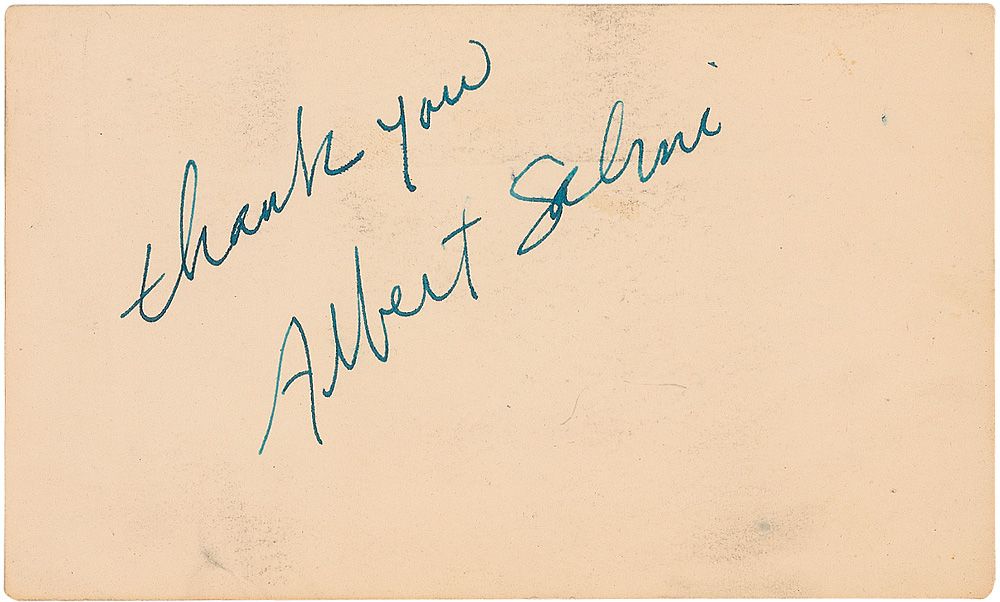 thank you
Albert Salmi